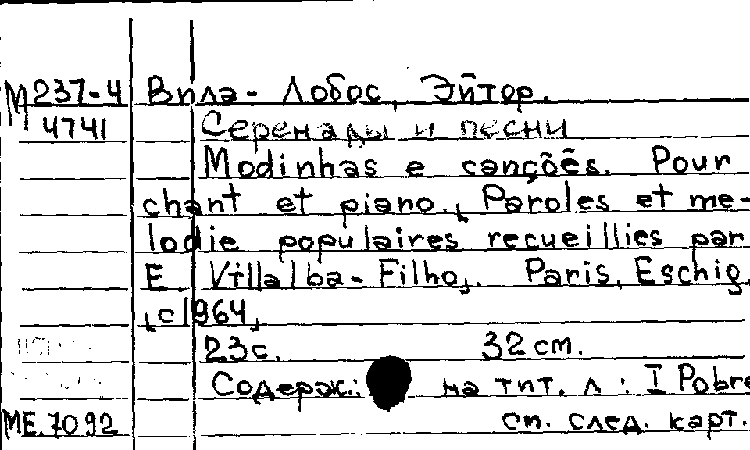 М 237-4 Вила-Лобос, Эйтор.
4741 Серенады и песни
Modinhas e canções. Pour
chant et piano. [Paroles et me-
lodie populaires recueillies par
E Villalba-Filho]. Paris, Eschig,
[c1964]
23с. 32 см.
Содерж.: на тит. л.: I Pobre
МЕ.7092 см. след. карт.